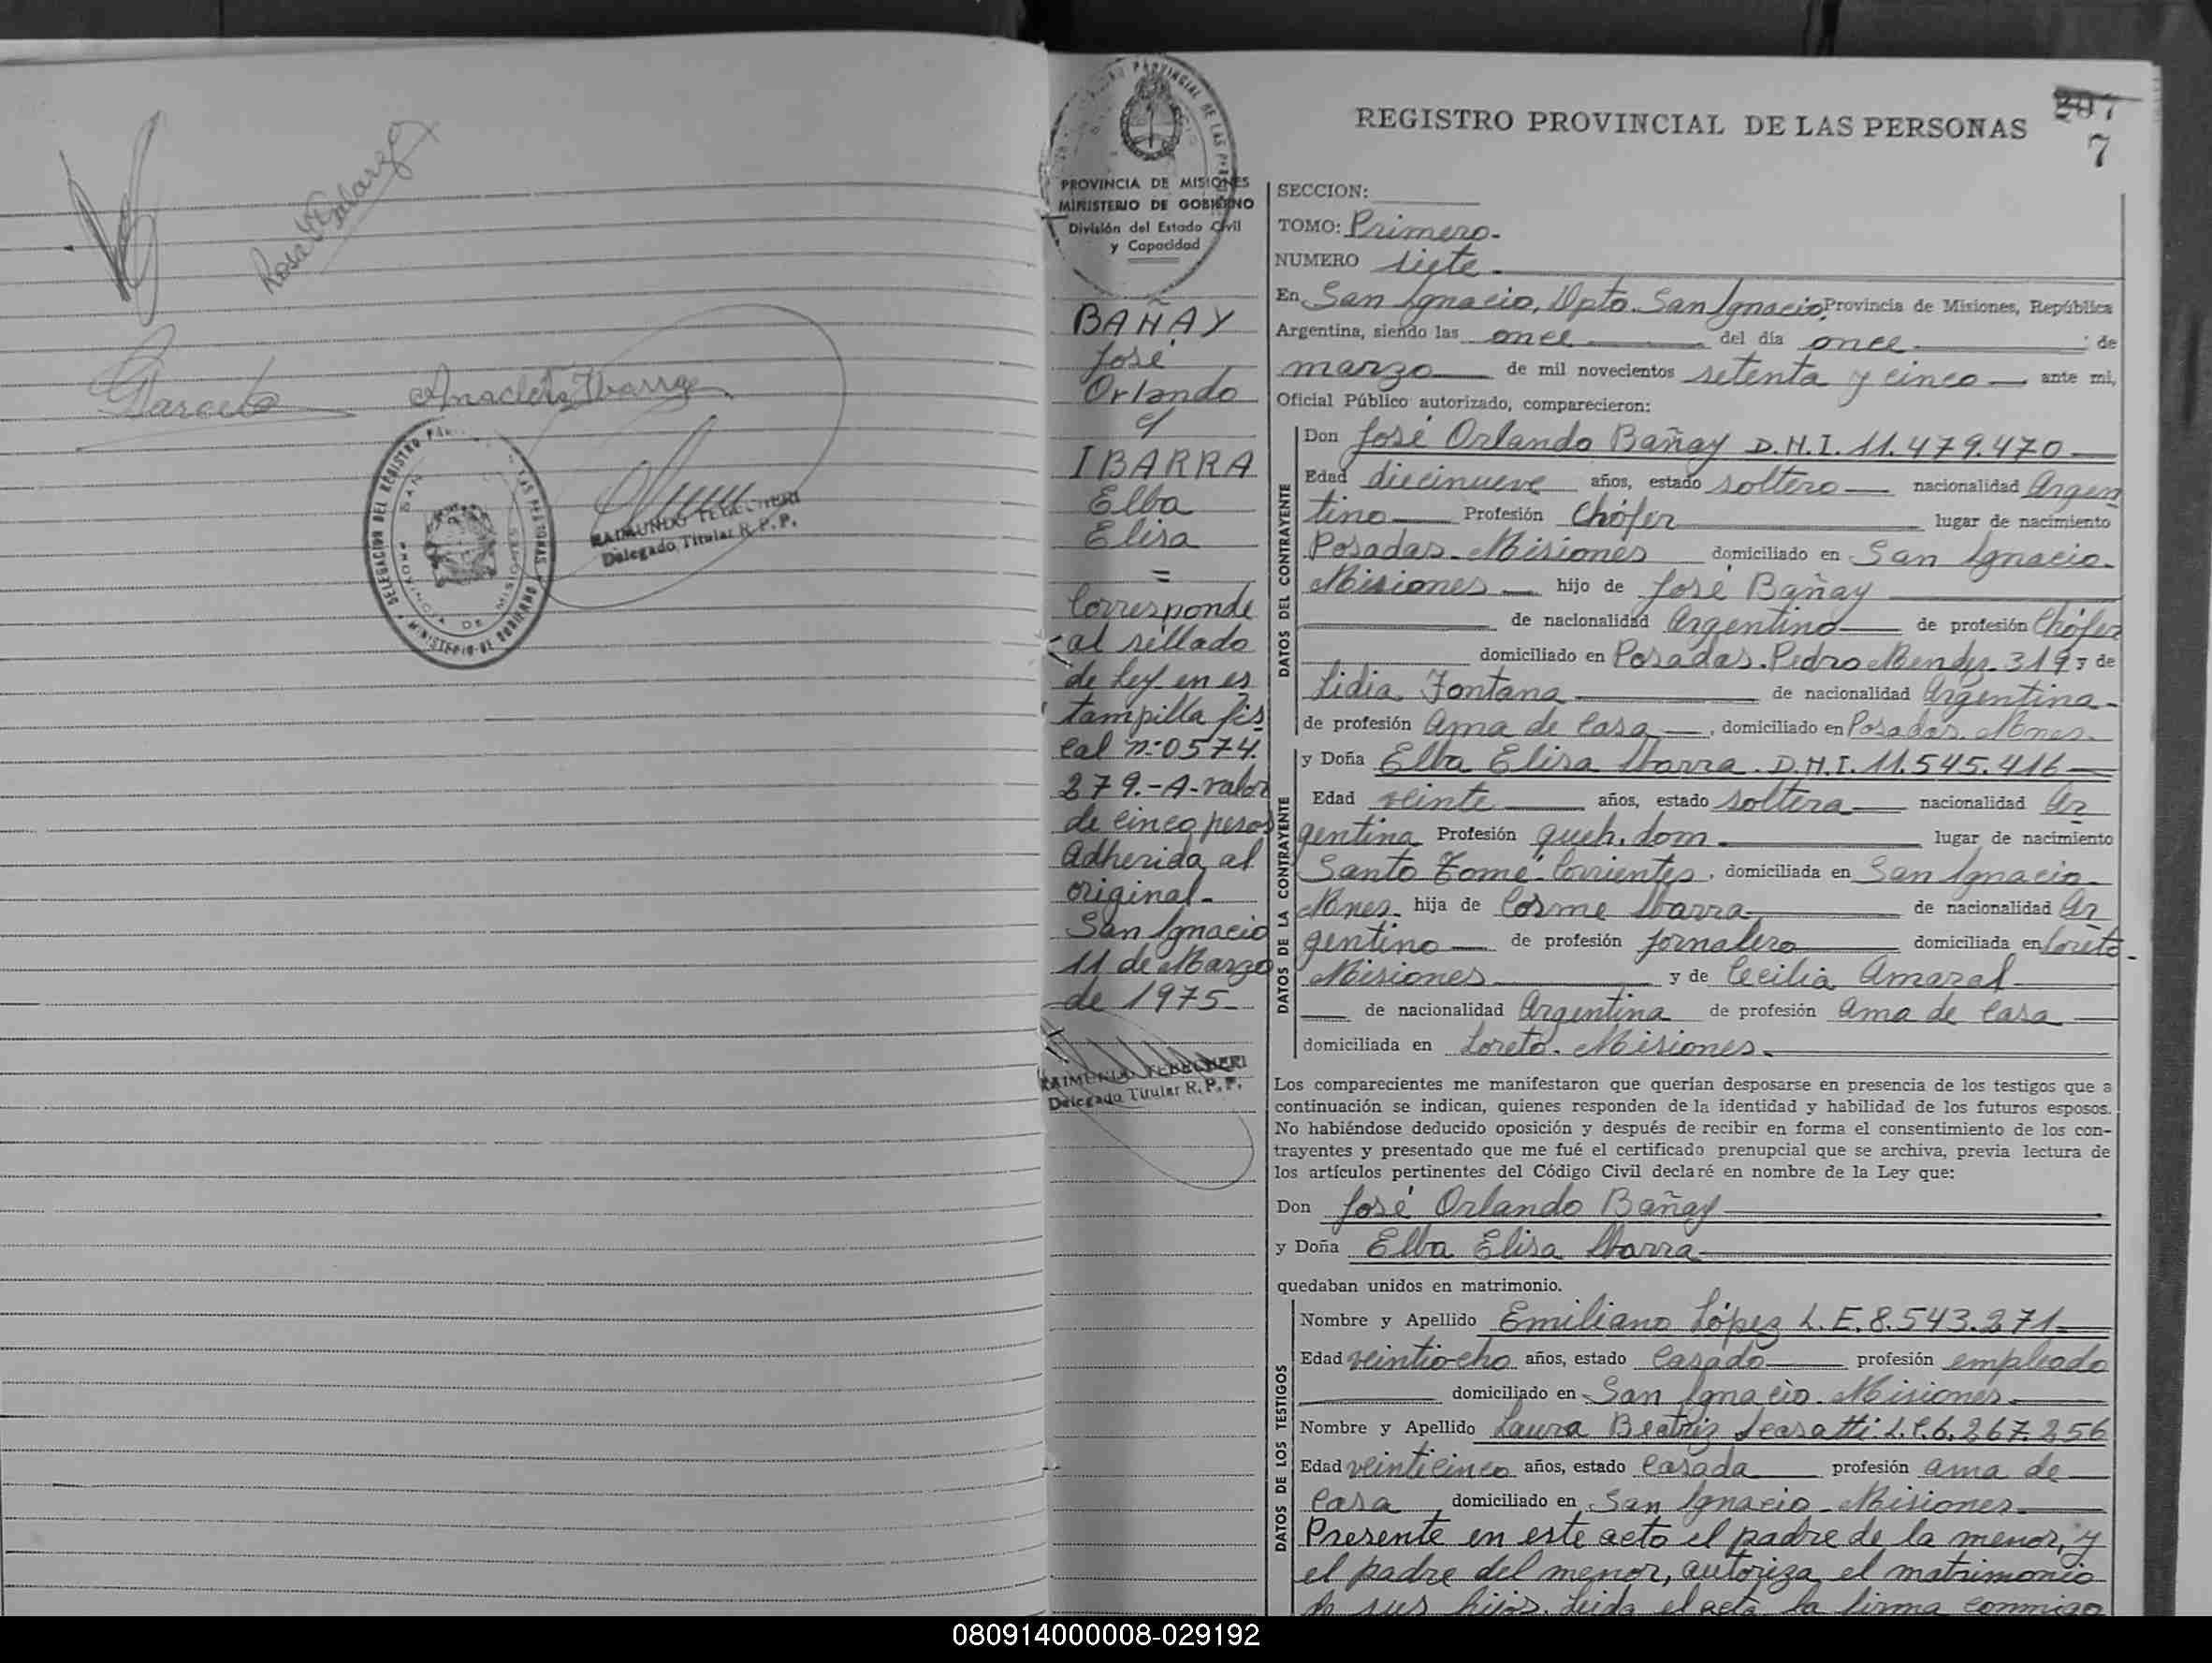 Rosa
Garcete
Anacleto Ibarra
DELEGACION DEL REGISTRO
LAS PERSONAS
MINISTERIO DE GOBIERNO
SAN
PROVINCIA DE MISIONES
RAIMUNDO
Delegado Titular R.P.P.
PROVINCIAL DE LAS
PROVINCIA DE MISIONES
MINISTERIO DE GOBIERNO
División del Estado Civil
y Capacidad
BAÑAY
José
Orlando
c/
IBARRA
Elba
Elisa
=
Corresponde
al sellado
de Ley en es
tampilla fis
cal n:0574.
279.-A-valor
de cinco pesos
Adherida al
original-
San Ignacio
11 de Marzo
de 1975-
RAIMUNDO
Delegado Titular R.P.P.
REGISTRO PROVINCIAL DE LAS PERSONAS
207
7
SECCION:
TOMO: Primero-
NUMERO siete-
En San Ignacio, Dpto. San Ignacio Provincia de Misiones, República
Argentina, siendo las once del día once de
marzo de mil novecientos setenta y cinco ante mi,
Oficial Público autorizado, comparecieron:
DATOS DEL CONTRAYENTE
Don José Orlando Bañay D.N.I. 11.479.470
Edad diecinueve años, estado soltero nacionalidad Argen
tino Profesión Chófer lugar de nacimiento
Posadas-Misiones domiciliado en San Ignacio-
Misiones hijo de José Bañay
de nacionalidad Argentino de profesión Chófer
domiciliado en Posadas-Pedro Mendez-319 y de
Lidia Fontana de nacionalidad Argentina-
de profesión Ama de Casa, domiciliado en Posadas. Mnes.
DATOS DE LA CONTRAYENTE
y Doña Elba Elisa Ibarra. D.N.I. 11.545.416
Edad veinte años, estado soltera nacionalidad Ar
gentina Profesión queh. dom. lugar de nacimiento
Santo Tomé-Corrientes, domiciliada en San Ignacio-
Mnes. hija de Cosme Ibarra de nacionalidad Ar
gentino de profesión jornalero domiciliada en Loreto-
Misiones y de Cecilia Amaral
de nacionalidad Argentina de profesión Ama de Casa
domiciliada en Loreto. Misiones.
Los comparecientes me manifestaron que querían desposarse en presencia de los testigos que a
continuación se indican, quienes responden de la identidad y habilidad de los futuros esposos.
No habiéndose deducido oposición y después de recibir en forma el consentimiento de los con-
trayentes y presentado que me fué el certificado prenupcial que se archiva, previa lectura de
los artículos pertinentes del Código Civil declaré en nombre de la Ley que:
Don José Orlando Bañay
y Doña Elba Elisa Ibarra
quedaban unidos en matrimonio.
DATOS DE LOS TESTIGOS
Nombre y Apellido Emiliano López L.E. 8.543.271
Edad veintiocho años, estado Casado profesión empleado
domiciliado en San Ignacio. Misiones
Nombre y Apellido Laura Beatriz L.C.6.267.256
Edad veinticinco años, estado Casada profesión ama de
Casa, domiciliado en San Ignacio-Misiones
Presente en este acto el padre de la menor, y
el padre del menor, autoriza el matrimonio
de sus hijos. Leida el acta la firma conmigo
080914000008-029192